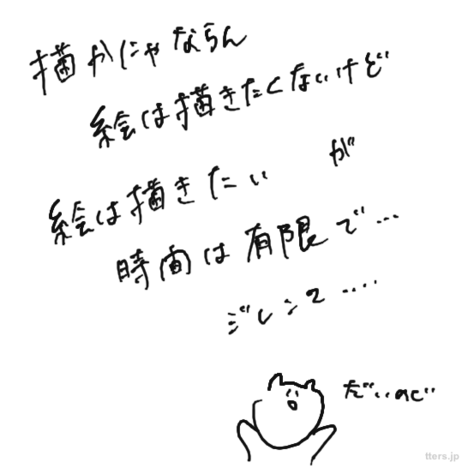 描かにゃならん
絵は描きたくないけど
絵は描きたい が
時間は有限で…
ジレンマ….
だいのじ
tters.jp